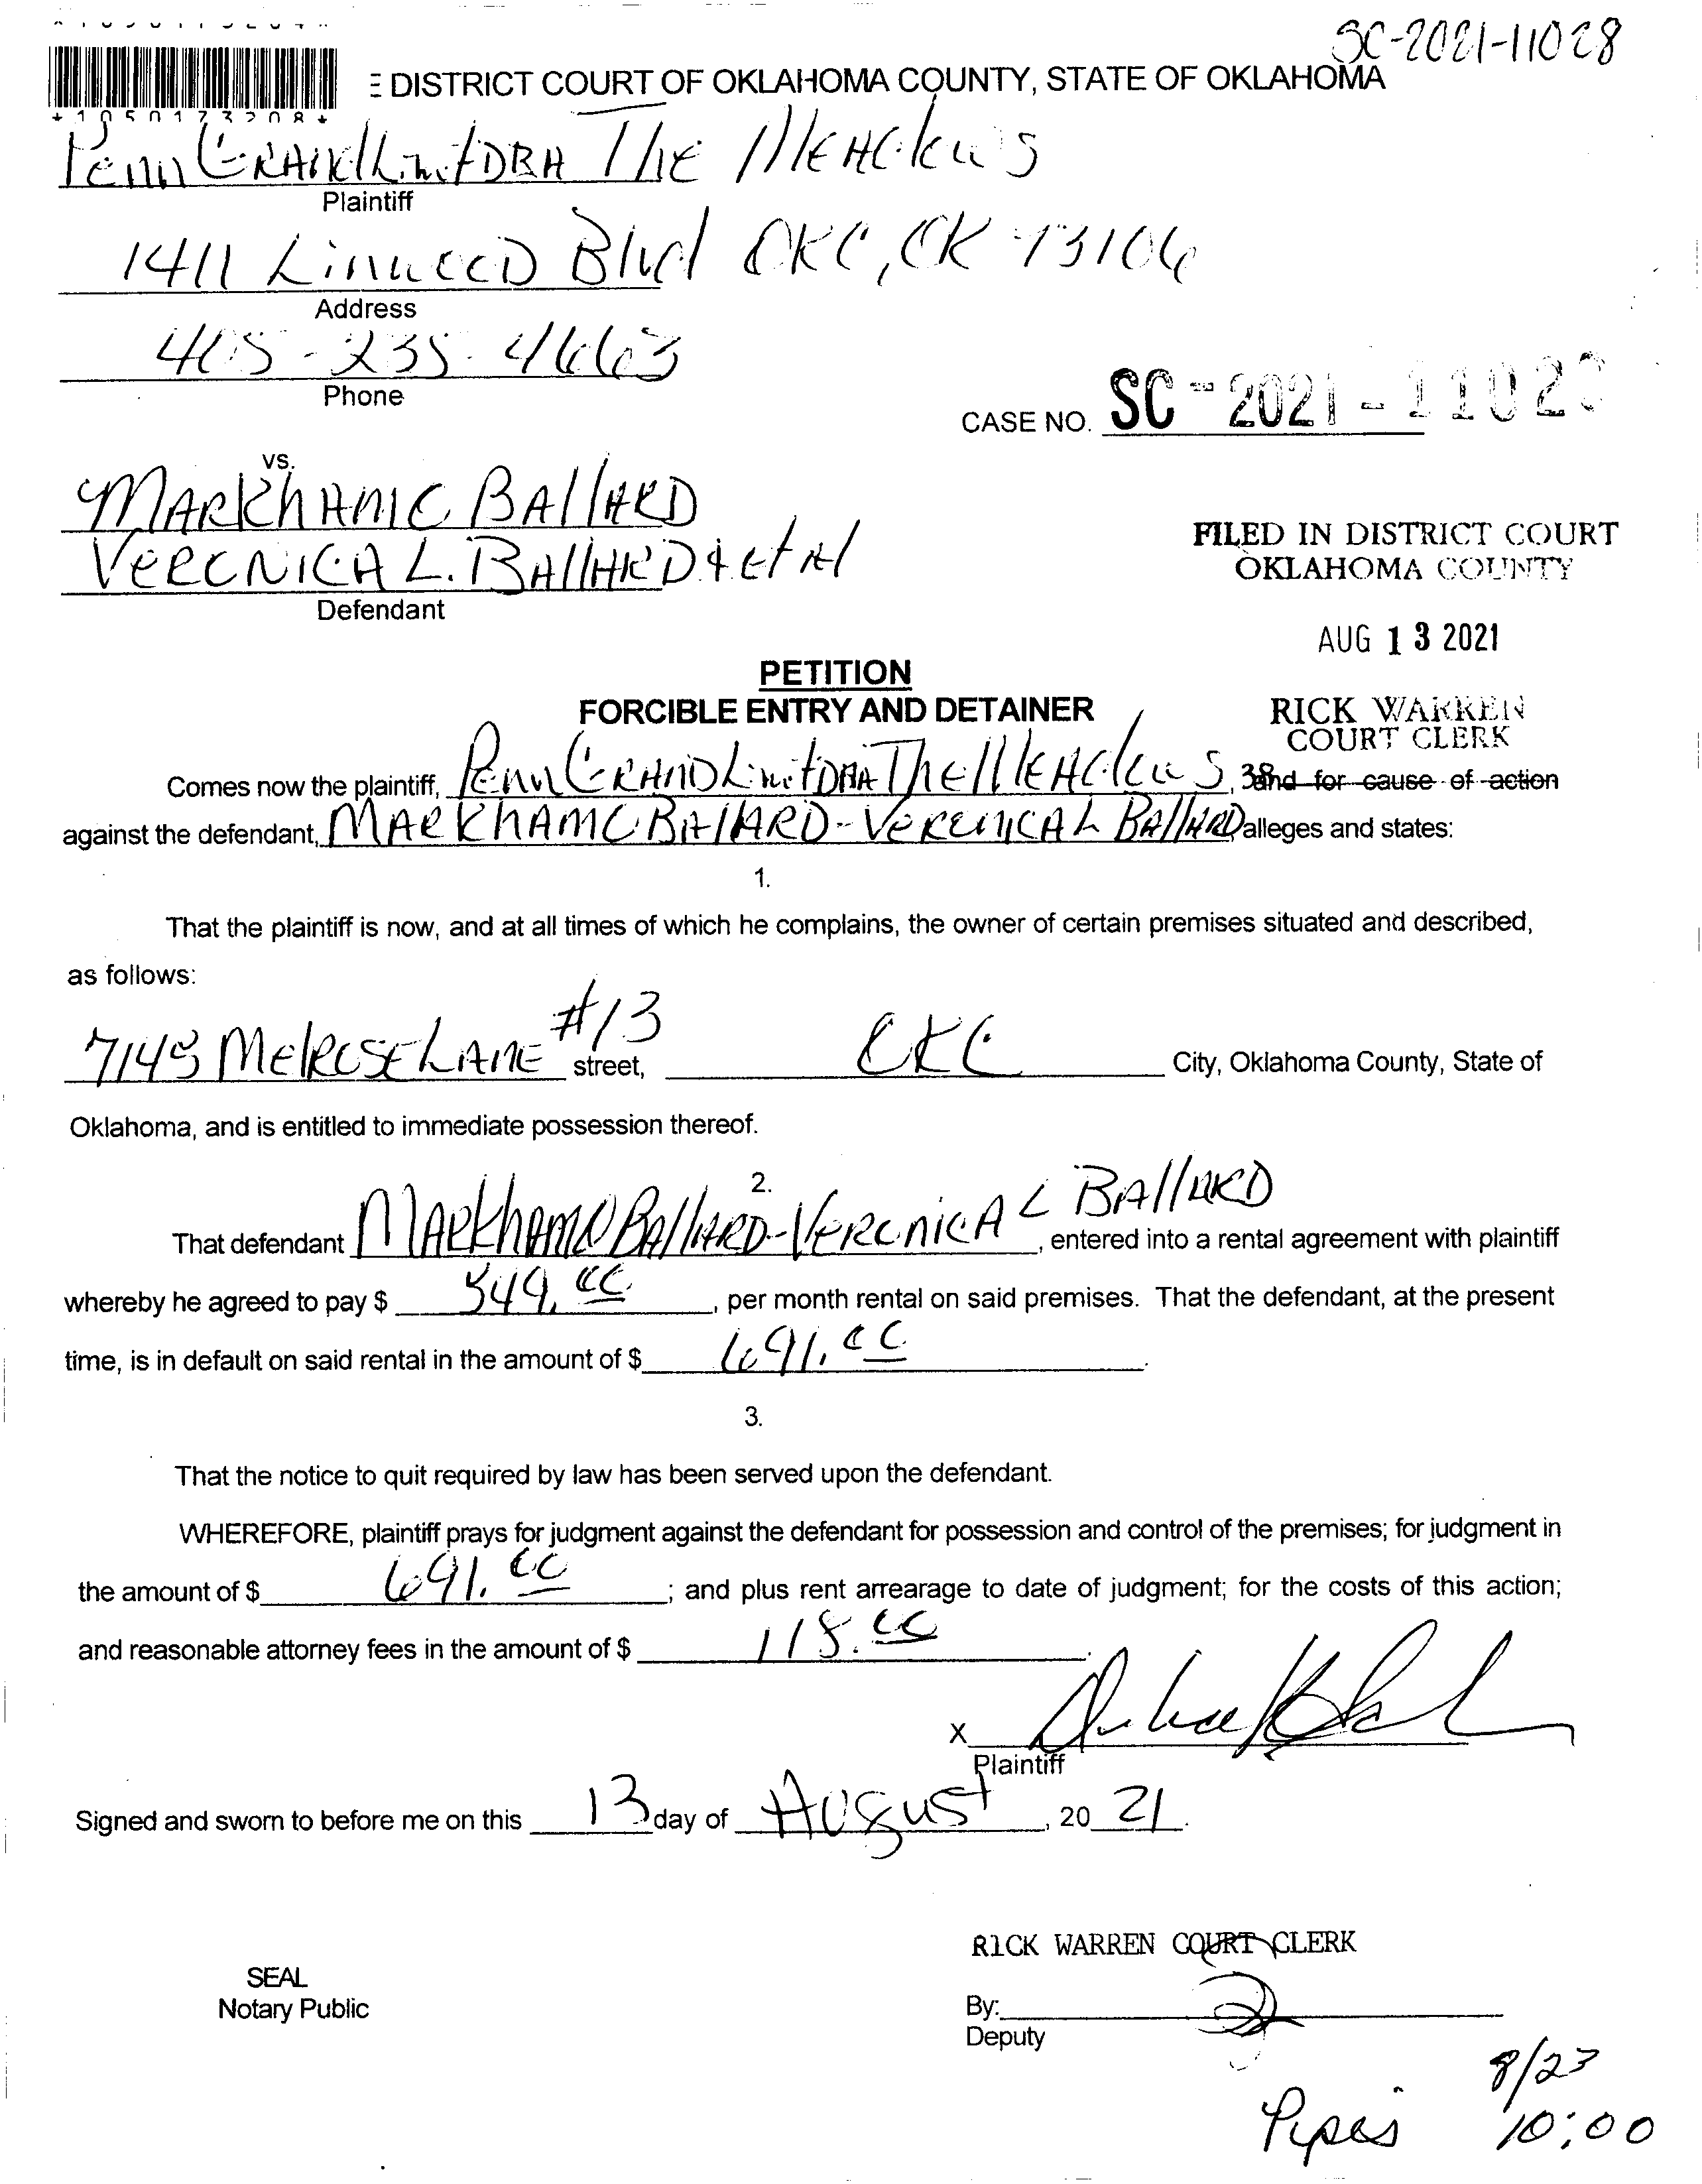 SC-2021-11028
DISTRICT COURT OF OKLAHOMA COUNTY, STATE OF OKLAHOMA
*1050173208*
Penn GRAND Limit DBA The Meadows
Plaintiff
1411 Linwood Blvd OKC, OK 73106
Address
405-235-4663
Phone
CASE NO. SC-2021-11028
vs.
MARKhAMC BAllARD
VERONICA L. BAllARD & et Al
Defendant
FILED IN DISTRICT COURT
OKLAHOMA COUNTY
AUG 13 2021
PETITION
FORCIBLE ENTRY AND DETAINER
RICK WARREN
COURT CLERK
Comes now the plaintiff, Penn GRAND Limit DBA The Meadows, 38 and for cause of action
against the defendant, MARKhAMC BAllARD-VERONICA L BAllARD alleges and states:
1.
That the plaintiff is now, and at all times of which he complains, the owner of certain premises situated and described,
as follows:
7145 MelROSE LANE #13 street, OKC City, Oklahoma County, State of
Oklahoma, and is entitled to immediate possession thereof.
2.
That defendant BAllARD-VERONICA L BAllARD, entered into a rental agreement with plaintiff
whereby he agreed to pay $ 549.00, per month rental on said premises. That the defendant, at the present
time, is in default on said rental in the amount of $ 691.00.
3.
That the notice to quit required by law has been served upon the defendant.
WHEREFORE, plaintiff prays for judgment against the defendant for possession and control of the premises; for judgment in
the amount of $ 691.00; and plus rent arrearage to date of judgment; for the costs of this action;
and reasonable attorney fees in the amount of $ 118.00.
X
Plaintiff
Signed and sworn to before me on this 13 day of August, 20 21.
RICK WARREN COURT CLERK
SEAL
Notary Public
By:
Deputy
8/23
Pipes 10:00